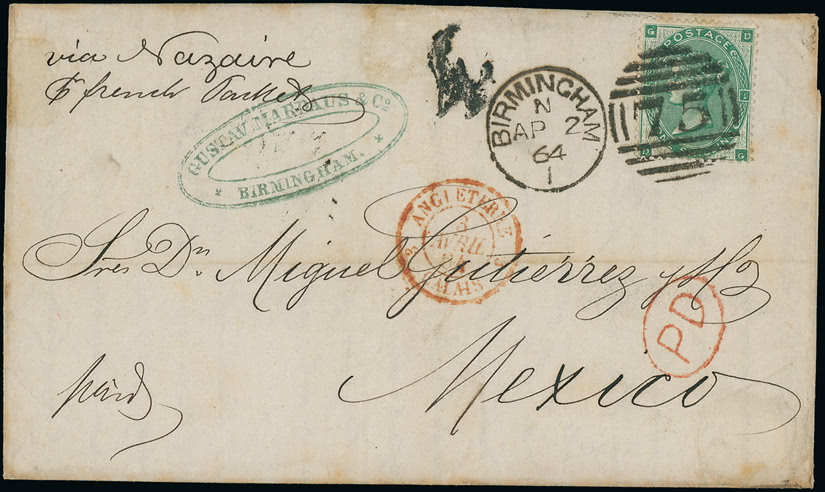 via Nazaire
℔ french Packet
GUSTAV MARDAUS & Co
* BIRMINGHAM. *
BIRMINGHAM
N
AP 2
64
1
G D
POSTAGE
75
D G
ANGLETERRE
3
AVRIL
64
CALAIS
Sres Dn. Miguel Gutiérrez y Ho
PD
Mexico
paid